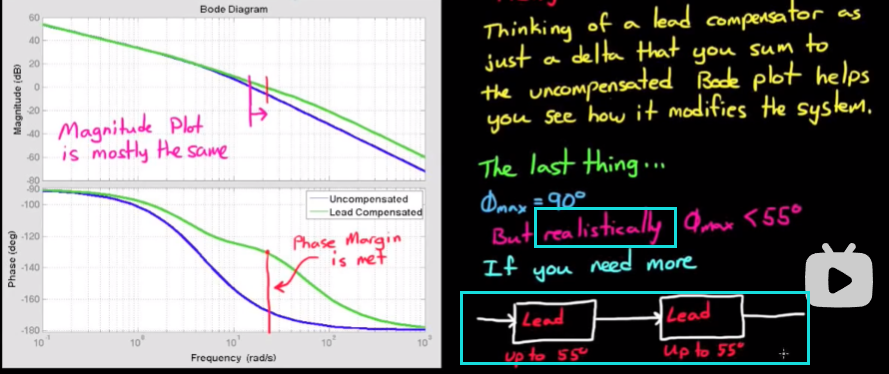 Bode Diagram
Magnitude (dB)
60
40
20
0
-20
40
-60
-80
Magnitude Plot
is mostly the same
Phase (deg)
-90
-100
-120
-140
-160
-180
Uncompensated
Lead Compensated
Phase Margin
is met
10⁰
10²
Frequency (rad/s)
Thinking of a lead compensator as
just a delta that you sum to
the uncompensated Bode plot helps
you see how it modifies the system.
The last thing...
Φmax = 90°
But realistically Φmax < 55°
If you need more
Lead
Lead
up to 55°
up to 55°